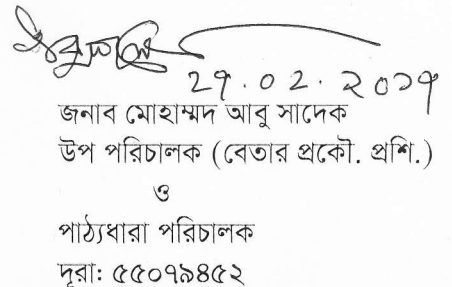 ২৭.০২.২০১৭
জনাব মোহাম্মদ আবু সাদেক
উপ পরিচালক (বেতার প্রকৌ. প্রশি.)
ও
পাঠ্যধারা পরিচালক
দূরা: ৫৫০৭৯৪৫২